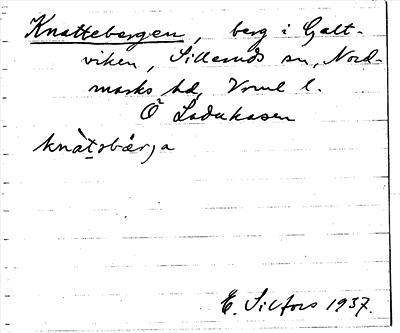 Knattebergen, berg i Galt-
viken, Silleruds sn, Nord-
marks hd, Vrml l.
Ö Ladukasen
knàt̠əbä̀rja
E. Silfors 1937.